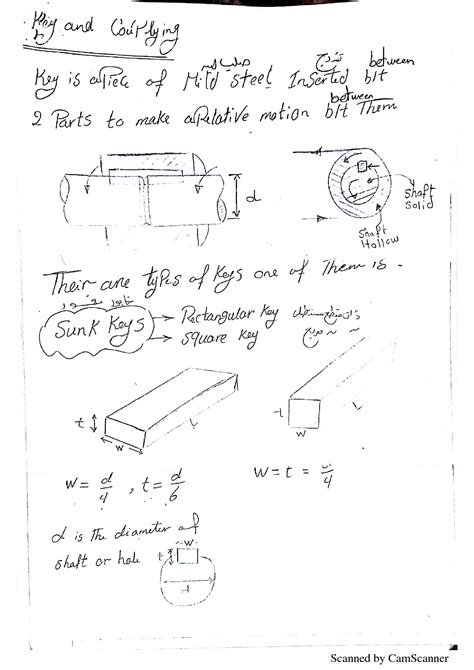 Key and Couplying
صلب
Key is a Piece of Mild steel Inserted b/t between
2 Parts to make a Relative motion b/t Them between
d
shaft
solid
shaft
Hollow
Their are types of Keys one of Them is .
Sunk Keys → Rectangular Key
→ Square Key
t
w
L
t
w
L
w = d/4 , t = d/6
w = t = /4
d is the diameter of
shaft or hole
w
t
d
Scanned by CamScanner